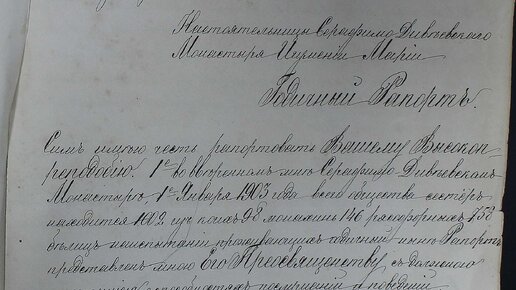 Настоятельницы Серафимо Дивѣевскаго
Монастыря Игуменіи Маріи
Годичный Рапортъ.
Симъ имѣю честь рапортовать Вашему Высокоп-
реподобію. 1е во ввѣренномъ мнѣ Серафимо-Дивѣевскомъ
Монастырѣ 1е Января 1903 года всего общества сестёръ
находится 1002 изъ коихъ 98 монахинь 146 рясофорныхъ 758
бѣлицъ на испытаніи проживающихъ годичный мною Рапортъ
представленъ мною Его Преосвященству съ должною
о способностяхъ послушаніи и поведеніи